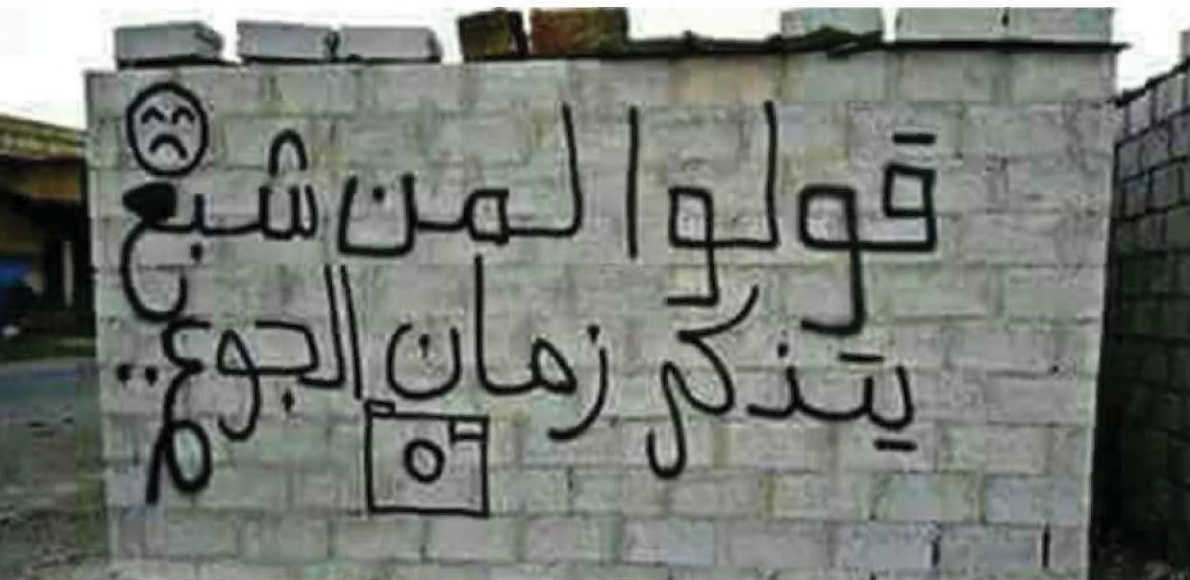 قولوا لمن شبع
يتذكر زمان الجوع..